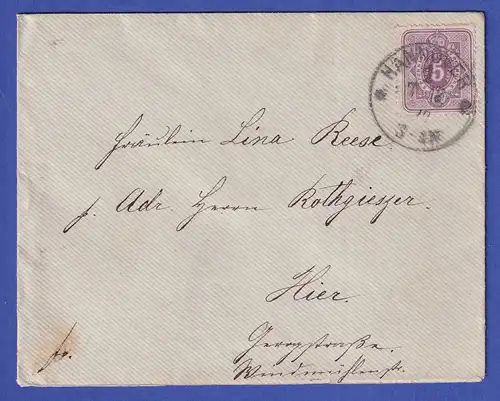 HANNOVER
5
3-4N
Fräulein Lina Reese.
p. Adr. Herrn Rothgiesser.
Hier.
fr.
Georgstraße.
Windmühlenstr.